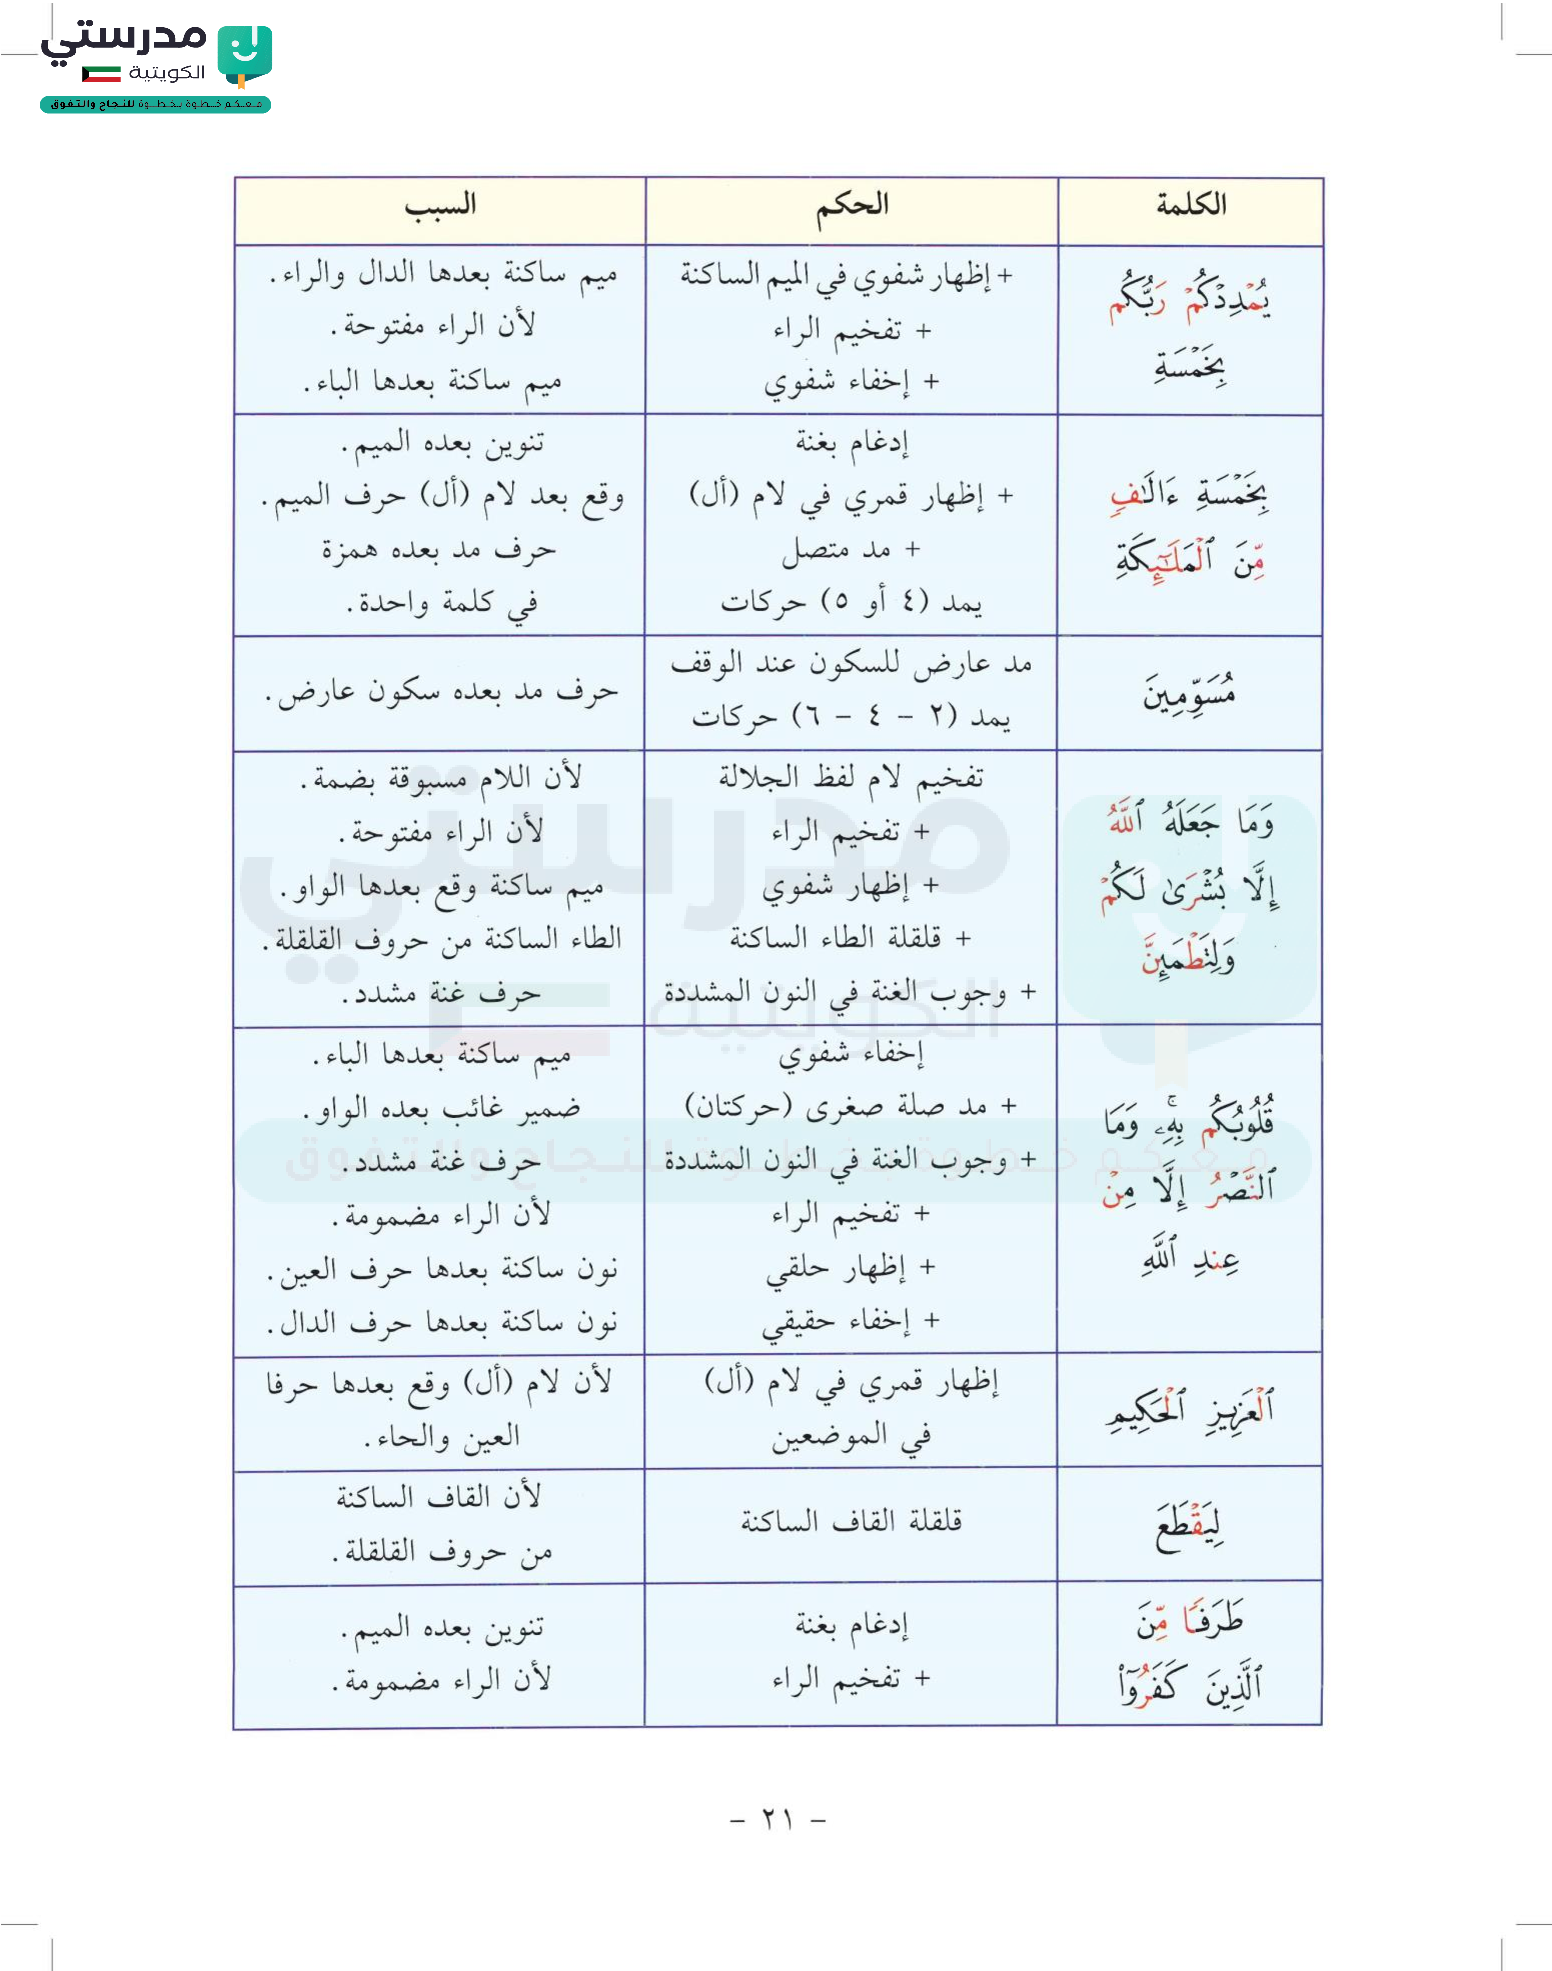 مدرستي
الكويتية
معكم خطوة بخطوة للنجاح والتفوق
الكلمة
الحكم
السبب
يُمْدِدْكُمْ رَبُّكُم
بِخَمْسَةِ
+ إظهار شفوي في الميم الساكنة
+ تفخيم الراء
+ إخفاء شفوي
ميم ساكنة بعدها الدال والراء.
لأن الراء مفتوحة.
ميم ساكنة بعدها الباء.
بِخَمْسَةِ ءَالَٰفٍ
مِّنَ ٱلْمَلَٰٓئِكَةِ
إدغام بغنة
+ إظهار قمري في لام (أل)
+ مد متصل
يمد (٤ أو ٥) حركات
تنوين بعده الميم.
وقع بعد لام (أل) حرف الميم.
حرف مد بعده همزة
في كلمة واحدة.
مُسَوِّمِينَ
مد عارض للسكون عند الوقف
يمد (٢ – ٤ – ٦) حركات
حرف مد بعده سكون عارض.
وَمَا جَعَلَهُ ٱللَّهُ
إِلَّا بُشْرَىٰ لَكُمْ
وَلِتَطْمَئِنَّ
تفخيم لام لفظ الجلالة
+ تفخيم الراء
+ إظهار شفوي
+ قلقلة الطاء الساكنة
+ وجوب الغنة في النون المشددة
لأن اللام مسبوقة بضمة.
لأن الراء مفتوحة.
ميم ساكنة وقع بعدها الواو.
الطاء الساكنة من حروف القلقلة.
حرف غنة مشدد.
قُلُوبُكُم بِهِۦۗ وَمَا
ٱلنَّصْرُ إِلَّا مِنْ
عِندِ ٱللَّهِ
إخفاء شفوي
+ مد صلة صغرى (حركتان)
+ وجوب الغنة في النون المشددة
+ تفخيم الراء
+ إظهار حلقي
+ إخفاء حقيقي
ميم ساكنة بعدها الباء.
ضمير غائب بعده الواو.
حرف غنة مشدد.
لأن الراء مضمومة.
نون ساكنة بعدها حرف العين.
نون ساكنة بعدها حرف الدال.
ٱلْعَزِيزِ ٱلْحَكِيمِ
إظهار قمري في لام (أل)
في الموضعين
لأن لام (أل) وقع بعدها حرفا
العين والحاء.
لِيَقْطَعَ
قلقلة القاف الساكنة
لأن القاف الساكنة
من حروف القلقلة.
طَرَفًا مِّنَ
ٱلَّذِينَ كَفَرُوٓا۟
إدغام بغنة
+ تفخيم الراء
تنوين بعده الميم.
لأن الراء مضمومة.
– ٢١ –